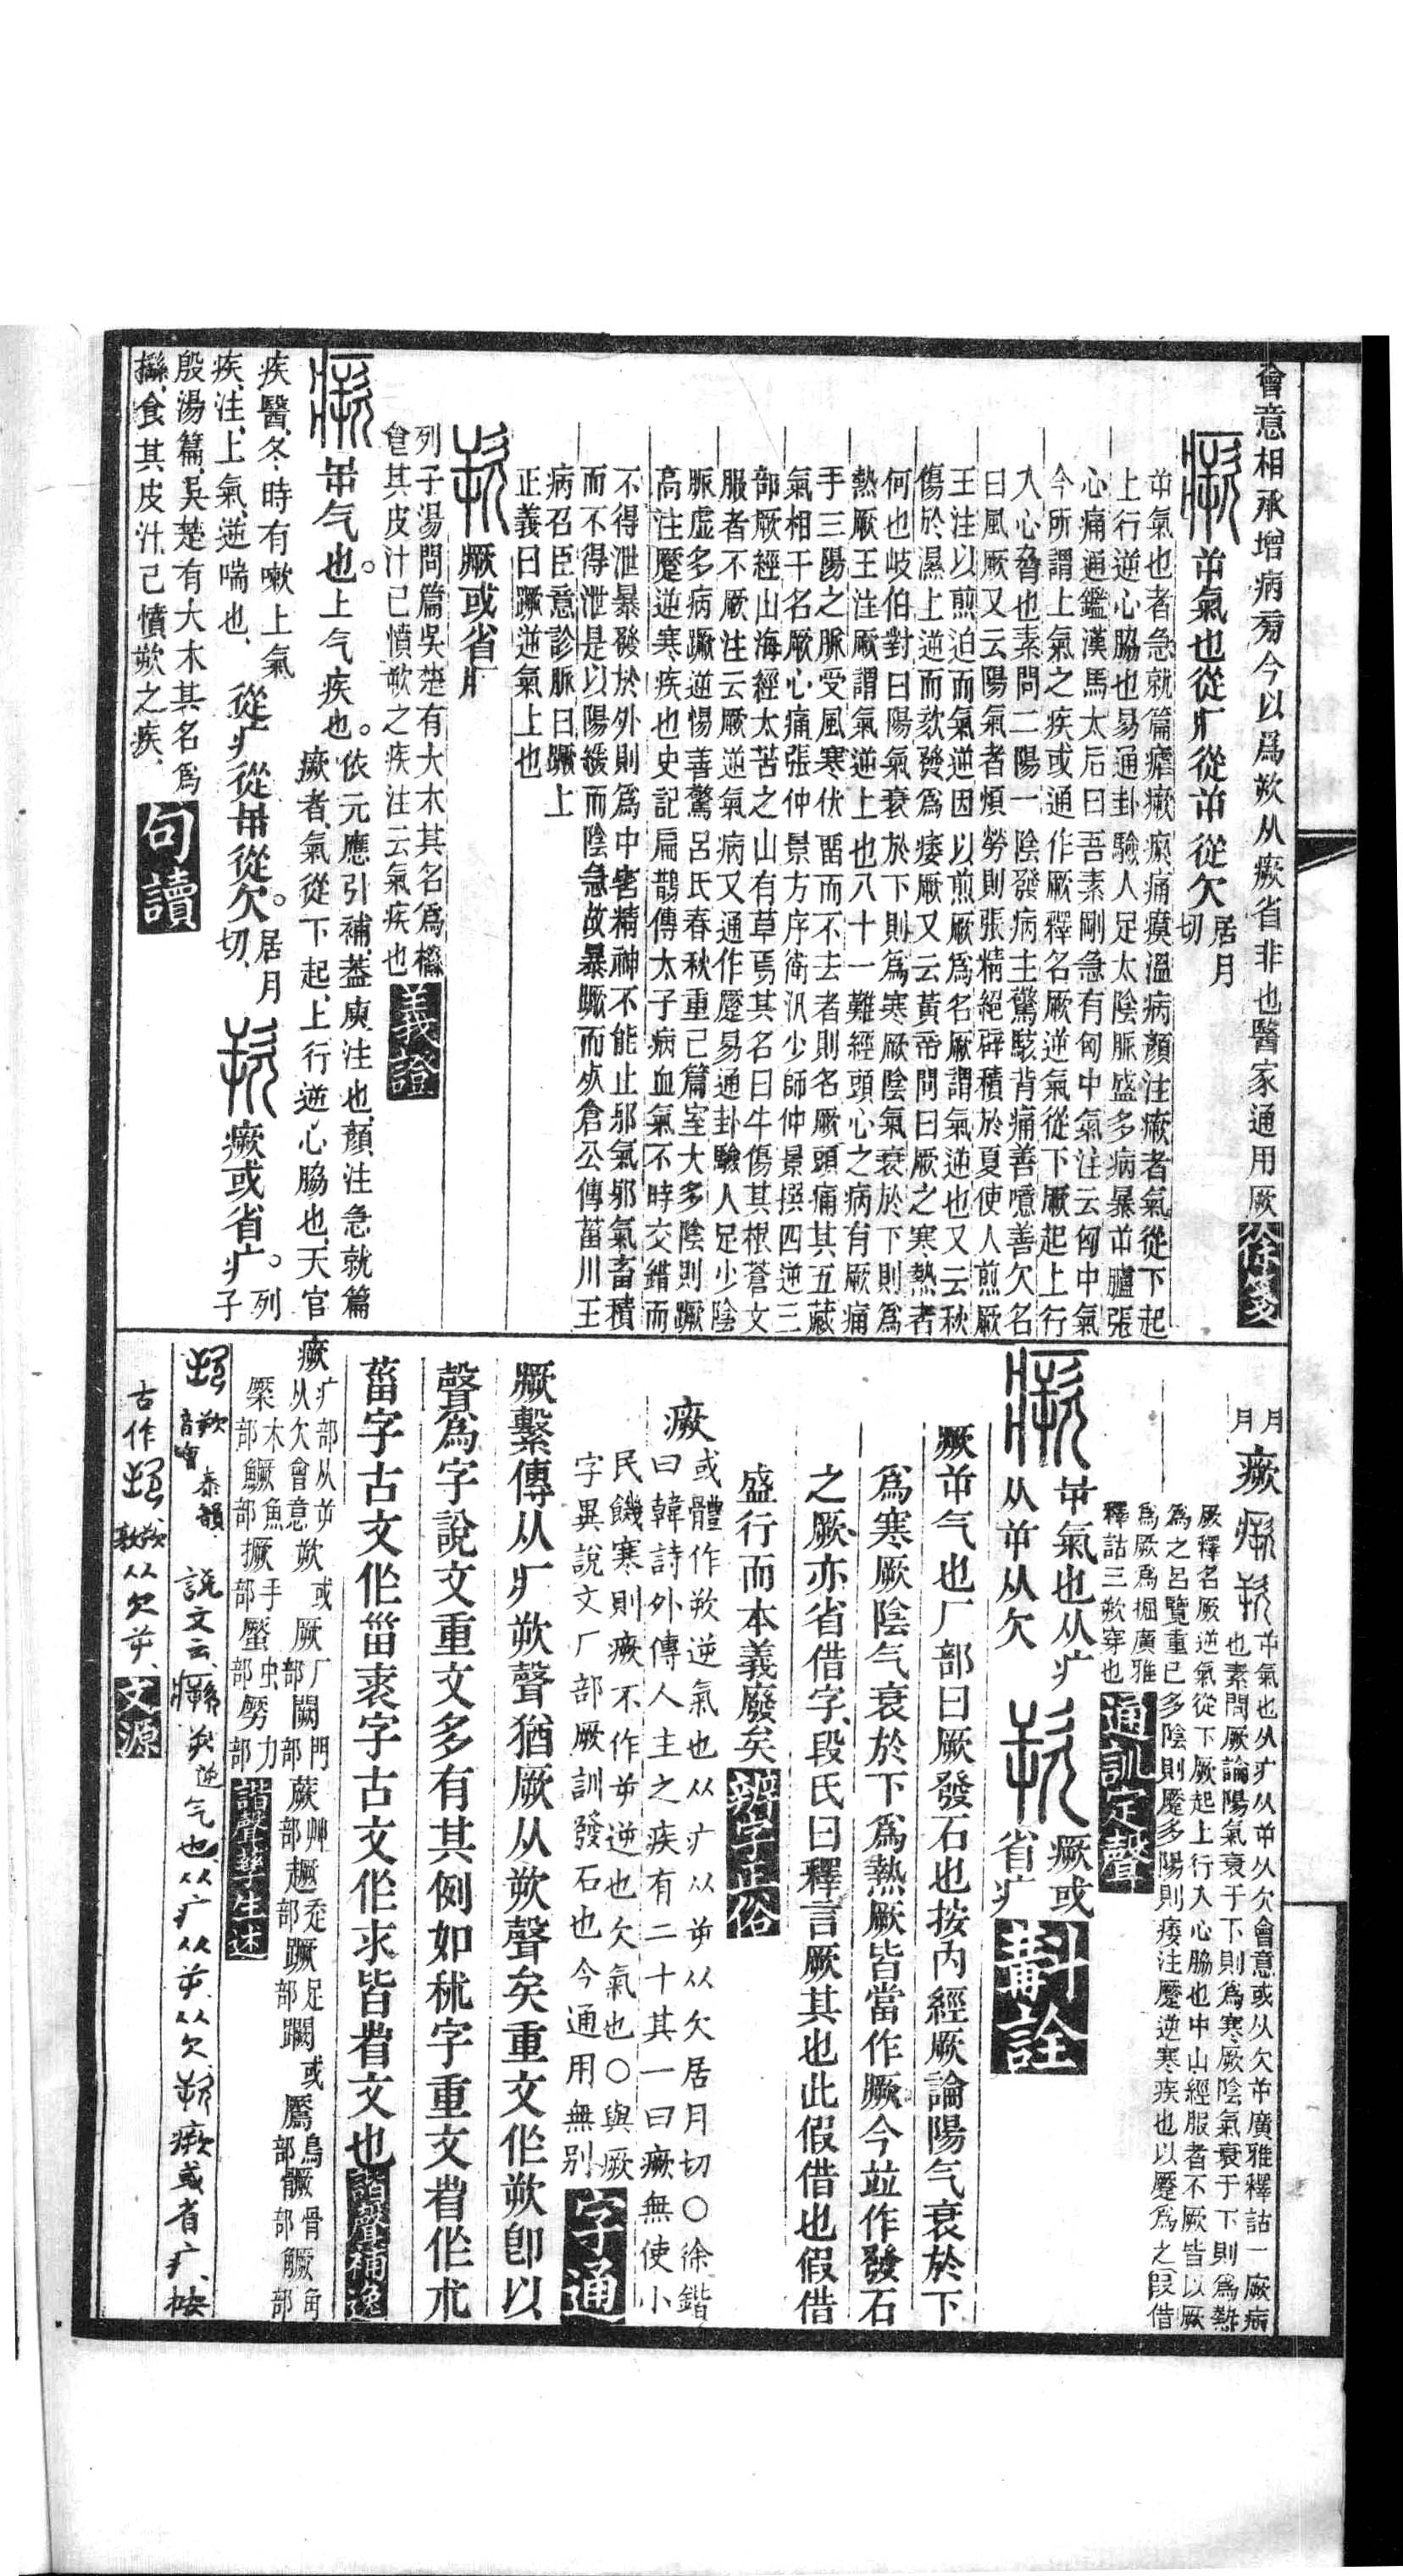 會意相承增病旁今以爲欮从瘚省非也醫家通用厥徐箋
瘚屰氣也從疒從屰從欠居月切
屰氣也者急就篇瘧瘚瘀痛瘼溫病顏注瘚者氣從下起
上行逆心脇也易通卦驗人足太陰脈盛多病暴屰臚張
心痛通鑑漢馬太后曰吾素剛急有匈中氣注云匈中氣
今所謂上氣之疾或通作厥釋名厥逆氣從下厥起上行
入心脅也素問二陽一陰發病主驚駭背痛善噫善欠名
曰風厥又云陽氣者煩勞則張精絕辟積於夏使人煎厥
王注以煎迫而氣逆因以煎厥爲名厥謂氣逆也又云秋
傷於濕上逆而欬發爲痿厥又云黃帝問曰厥之寒熱者
何也岐伯對曰陽氣衰於下則爲寒厥陰氣衰於下則爲
熱厥王注厥謂氣逆上也八十一難經頭心之病有厥痛
手三陽之脈受風寒伏畱而不去者則名厥頭痛其五藏
氣相干名厥心痛張仲景方序衛汛少師仲景撰四逆三
部厥經山海經太苦之山有草焉其名曰牛傷其根蒼文
服者不厥注云厥逆氣病又通作蹷易通卦驗人足少陰
脈虛多病蹶逆惕善驚呂氏春秋重己篇室大多陰則蹶
高注蹷逆寒疾也史記扁鵲傳太子病血氣不時交錯而
不得泄暴發於外則爲中害精神不能止邪氣邪氣畜積
而不得泄是以陽緩而陰急故暴蹶而死倉公傳菑川王
病召臣意診脈曰蹶上
正義曰蹶逆氣上也
欮瘚或省疒
列子湯問篇吳楚有大木其名爲櫾
食其皮汁已憤欮之疾注云氣疾也義證
瘚屰气也。上气疾也。依元應引補、葢庾注也、顏注急就篇
瘚者、氣從下起、上行逆心脇也、天官
疾醫、冬時有嗽上氣
疾、注、上氣、逆喘也、從疒從屰從欠。居月切、欮瘚或省疒。列子
殷湯篇、吳楚有大木其名爲
櫾、食其皮汁、已憤欮之疾、句讀
月月瘚瘚欮屰氣也从疒从屰从欠會意或从欠屰廣雅釋詁一厥病
也素問厥論陽氣衰于下則爲寒厥陰氣衰于下則爲熱
厥釋名厥逆氣從下厥起上行入心脇也中山經服者不厥皆以厥
爲之呂覽重已多陰則蹷多陽則痿注蹷逆寒疾也以蹷爲之叚借
爲厥爲掘廣雅
釋詁三欮穿也通訓定聲
瘚屰氣也从疒从屰从欠欮瘚或省疒斠詮
瘚屰气也厂部曰厥發石也按內經厥論陽气衰於下
爲寒厥陰气衰於下爲熱厥皆當作瘚今竝作發石
之厥亦省借字、段氏曰釋言厥其也此假借也假借
盛行而本義廢矣辨字正俗
瘚或體作欮逆氣也从疒从屰从欠居月切○徐鍇
曰韓詩外傳人主之疾有二十其一曰瘚無使小
民饑寒則瘚不作屰逆也欠氣也○與厥
字異說文厂部厥訓發石也今通用無別字通
瘚繫傳从疒欮聲猶厥从欮聲矣重文作欮卽以
聲爲字說文重文多有其例如秫字重文省作朮
菑字古文作甾裘字古文作求皆省文也諧聲補逸
瘚疒部从屰从欠會意欮或厥厂部闕門部蕨艸部趰走部蹶足部蹶或鷢鳥部髋骨部觼角部
橜木部鱖魚部撅手部蟨虫部劂力部諧聲孳生述
欮音噦泰韻、說文云、瘚、屰逆气也、从疒从屰、从欠、欮瘚或省疒、按
古作欮、从欠屰、文源